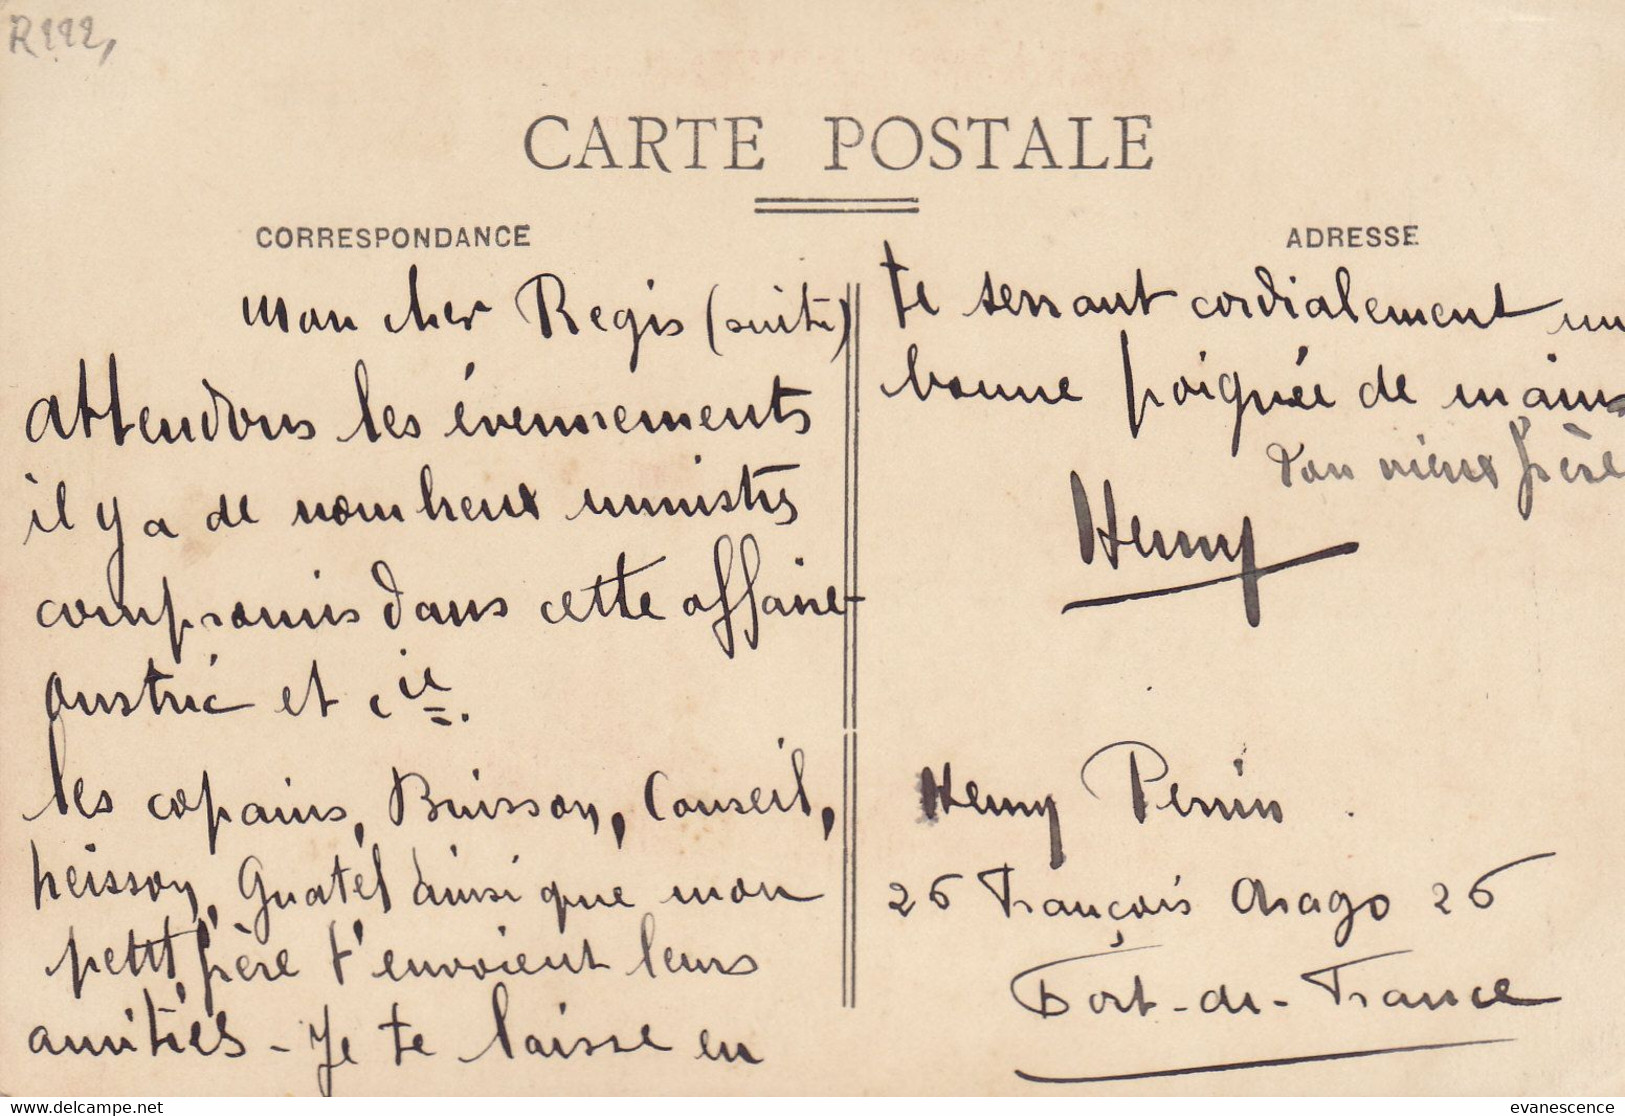 R222,
CARTE POSTALE
CORRESPONDANCE
Mon cher Regis (suite)
Attendons les évennements
il y a de nombreux ministres
compromis dans cette affaire
Oustric et Cie.
les copains, Buisson, Conseil,
heisson, Guatel ainsi que mon
petit frère t'envoient leurs
amitiés - Je te laisse en
ADRESSE
te serrant cordialement un
bonne poignée de mains
Ton vieux frère
Henry
Henry Perrin
26 François Arago 26
Fort-de-France
evanescence